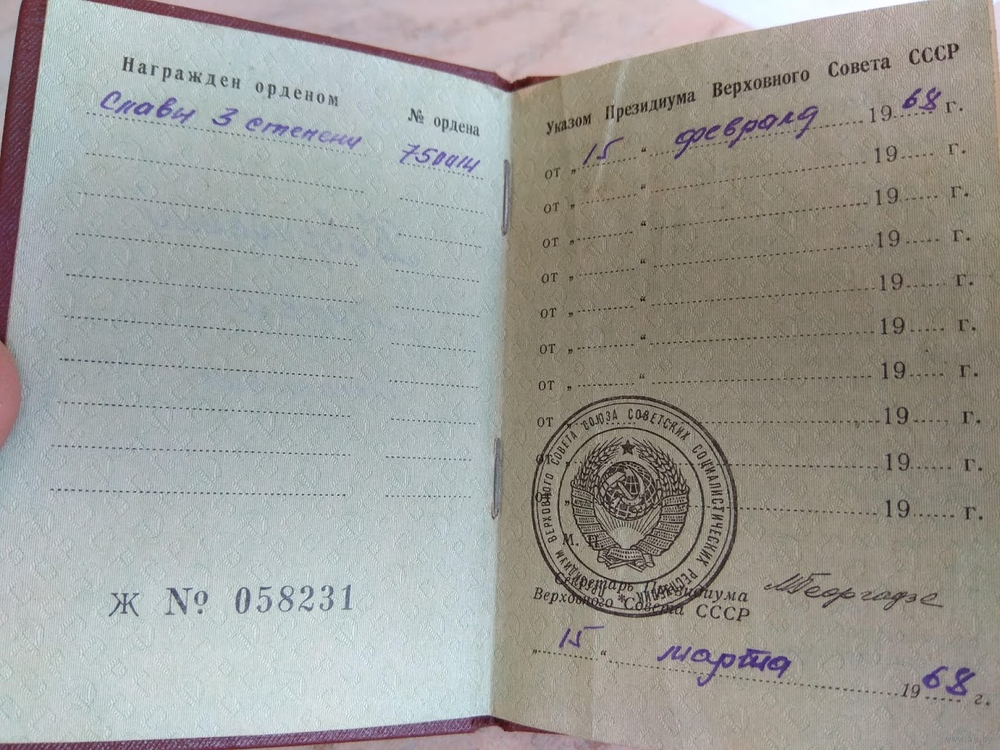 Награжден орденом
№ ордена
Славы 3 степени
750014
Ж № 058231
Указом Президиума Верховного Совета СССР
от „ 15 “ февраля 1968 г.
от „ “ 19 г.
от „ “ 19 г.
от „ “ 19 г.
от „ “ 19 г.
от „ “ 19 г.
от „ “ 19 г.
от „ “ 19 г.
от „ 19 г.
от 19 г.
ПРЕЗИДИУМ ВЕРХОВНОГО СОВЕТА СОЮЗА СОВЕТСКИХ СОЦИАЛИСТИЧЕСКИХ РЕСПУБЛИК
М. П.
Секретарь Президиума
Верховного Совета СССР
МГеоргадзе
„ 15 “ марта 1968 г.